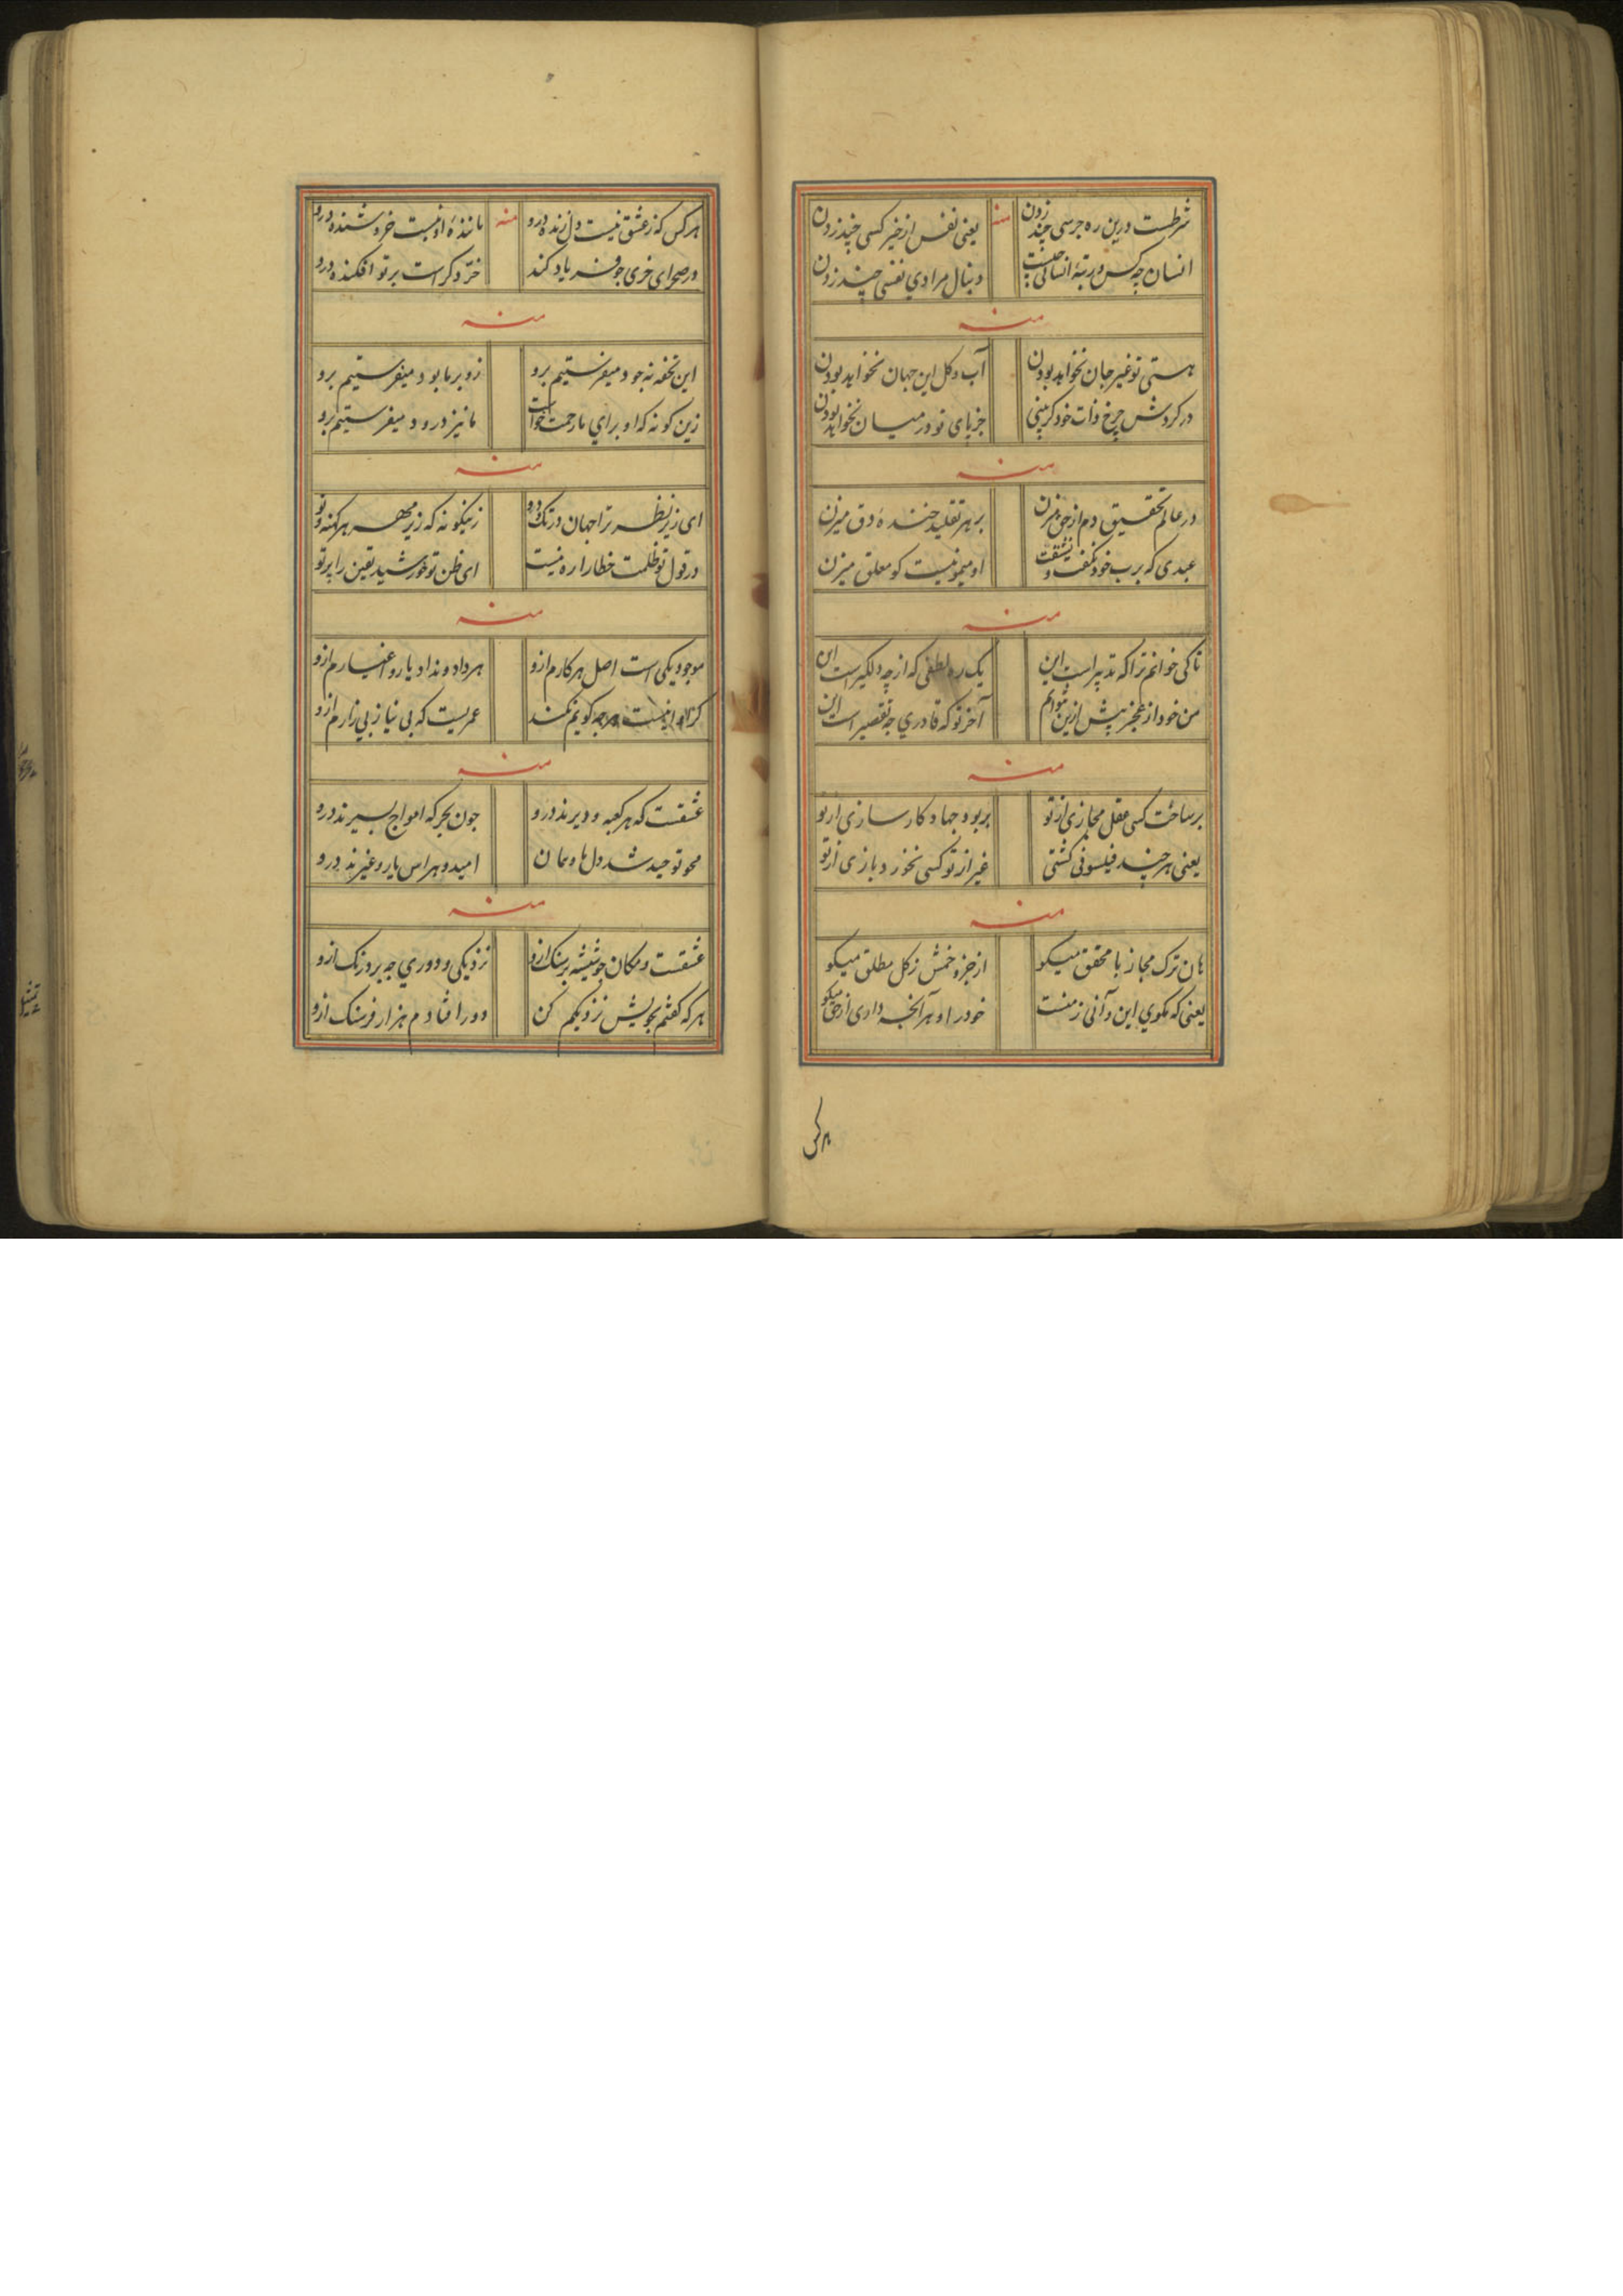 شرطست درین ره جرسی چند زدن
منه
یعنی نفس از خیر کسی چند زدن
انسان چه کس و رتبهٔ انسانی چیست
دنبال مرادی نفسی چند زدن
منه
هستی تو غیر جان نخواهد بودن
آب و کل این جهان نخواهد بودن
در کردش چرخ ذات خود کر بینی
جز پای تو در میان نخواهد بودن
منه
در عالم تحقیق دم از حق میزن
بر هر تقلید خنده دق میزن
عبدی که برب خود نکفت و نشنفت
او میمونیست کو معلق میزن
منه
تا کی خوانم ترا که تدبیر است این
یک ره لطفی که از چه دلکیر است این
من خود از عجز پیش ازین نتوانم
آخر تو که قادری چه تقصیر است این
منه
بر ساخت کسی عقل مجازی از تو
بربود جهاد کار سازی از تو
یعنی هر چند فیلسوفی کشتی
غیر از تو کسی نخورد بازی از تو
منه
هان ترک مجاز با محقق میکو
از جزو خمش ز کل مطلق میکو
یعنی که مکوی این و آنی ز منست
خود را و هر آنچه داری از حق میکو
هر کس
هر کس که ز عشق نیست دل زنده درو
منه
ماننده او نیست خروشنده درو
در صحرای خری جو فریاد کند
خر دکر است پرتو افکنده درو
منه
این تحفه نه جود میفرستیم برو
زو بر ما بود میفرستیم برو
زین کونه که او برای ما رحمت خواست
ما نیز درود میفرستیم برو
منه
ای زیر نظر ترا جهان در تک و دو
زینکونه که زیر مهر هر کهنه و نو
در قول تو ظلمت خطا را ره نیست
ای ظن تو خورشید یقین را پرتو
منه
موجود یکی است اصل هر کارم ازو
هر داد و نداد یار و اغیارم ازو
نیست کویم نکند
عمریست که بی نیاز بی زارم ازو
منه
عشقست که هر کعبه و دیرند درو
جون بحر که امواج بسیرند درو
محو توحید شد دل ما و همان
امید و هراس یار و غیرند درو
منه
عشقست و مکان جو شیشه بر سنک ازو
نزدیکی و دوری چه برد رنک ازو
هر که کفتم بجویش نزدیکم کن
دور افتادم هزار فرسنک ازو